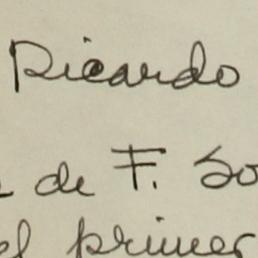 Ricardo
de F. So
el primer